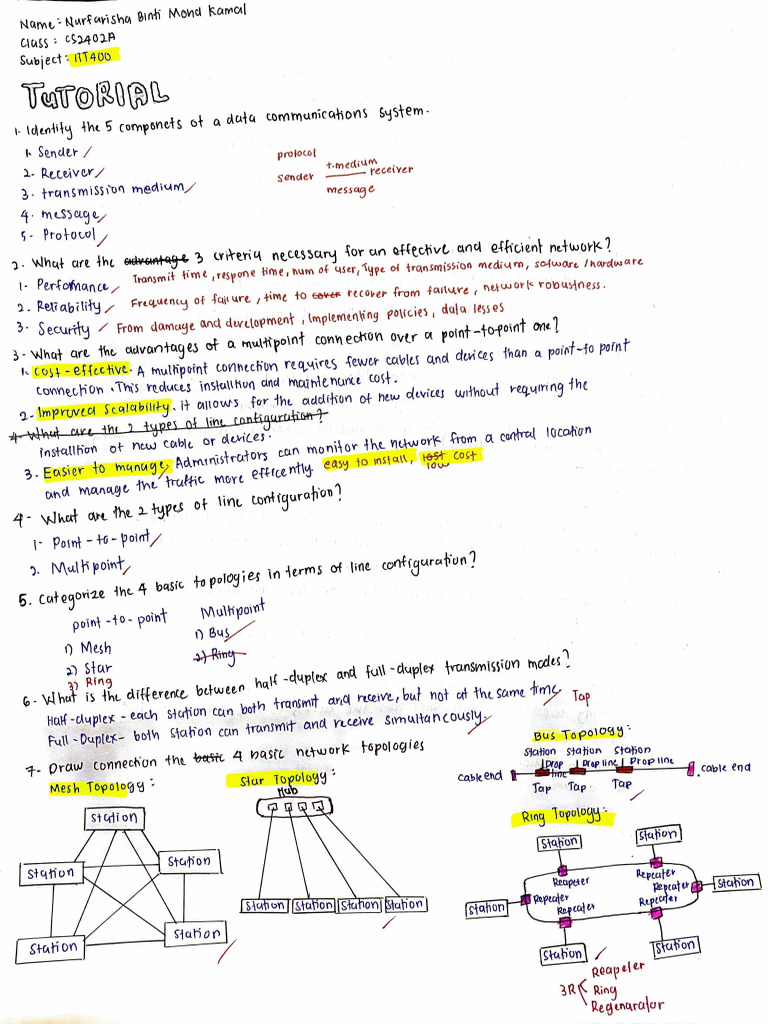 Name: Nurfarisha Binti Mohd Kamal
Class: CS2402A
Subject: ITT400
TUTORIAL
1. Identify the 5 componets of a data communications system.
1. Sender
2. Receiver
3. transmission medium
4. message
5. Protocol
protocol
t.medium
sender receiver
message
2. What are the advantage 3 criteria necessary for an effective and efficient network?
Transmit time, respone time, num of user, Type of transmission medium, sofware/hardware
1- Performance
2. Reliability Frequency of failure, time to cover recover from failure, network robustness.
3. Security From damage and development, Implementing policies, data lesses
3. What are the advantages of a multipoint connection over a point-to-point one?
1. Cost-effective. A multipoint connection requires fewer cables and devices than a point-to point
connection. This reduces installtion and maintenance cost.
2. Improved Scalability. it allows for the addition of new devices without requiring the
4- What are the 2 types of line configuration?
installtion of new cable or devices.
3. Easier to manage, Administrators can monitor the network from a central location
and manage the traffic more efficently easy to install, lost cost
low
4- What are the 2 types of line configuration?
1- Point-to-point
2. Multipoint
5. Categorize the 4 basic topologies in terms of line configuration?
point-to-point Multipoint
1) Mesh 1) Bus
2) Star 2) Ring
3) Ring
6. What is the difference between half-duplex and full-duplex transmission modes?
Half-duplex - each station can both transmit and receive, but not at the same time Tap
Full-Duplex- both Station can transmit and receive simultancously.
7- Draw connection the basic 4 basic network topologies
Mesh Topology:
Station
Station
Station
Station
Station
Star Topology:
Hub
Station Station Station Station
Bus Topology:
Station Station Station
Drop line Drop line Drop line
cable end cable end
Tap Tap Tap
Ring Topology:
Station Station
Reapeter Repeater
Repeater Repeater Station
Station Repeater Repeater
Station Station
3R
Reapeler
Ring
Regenarator